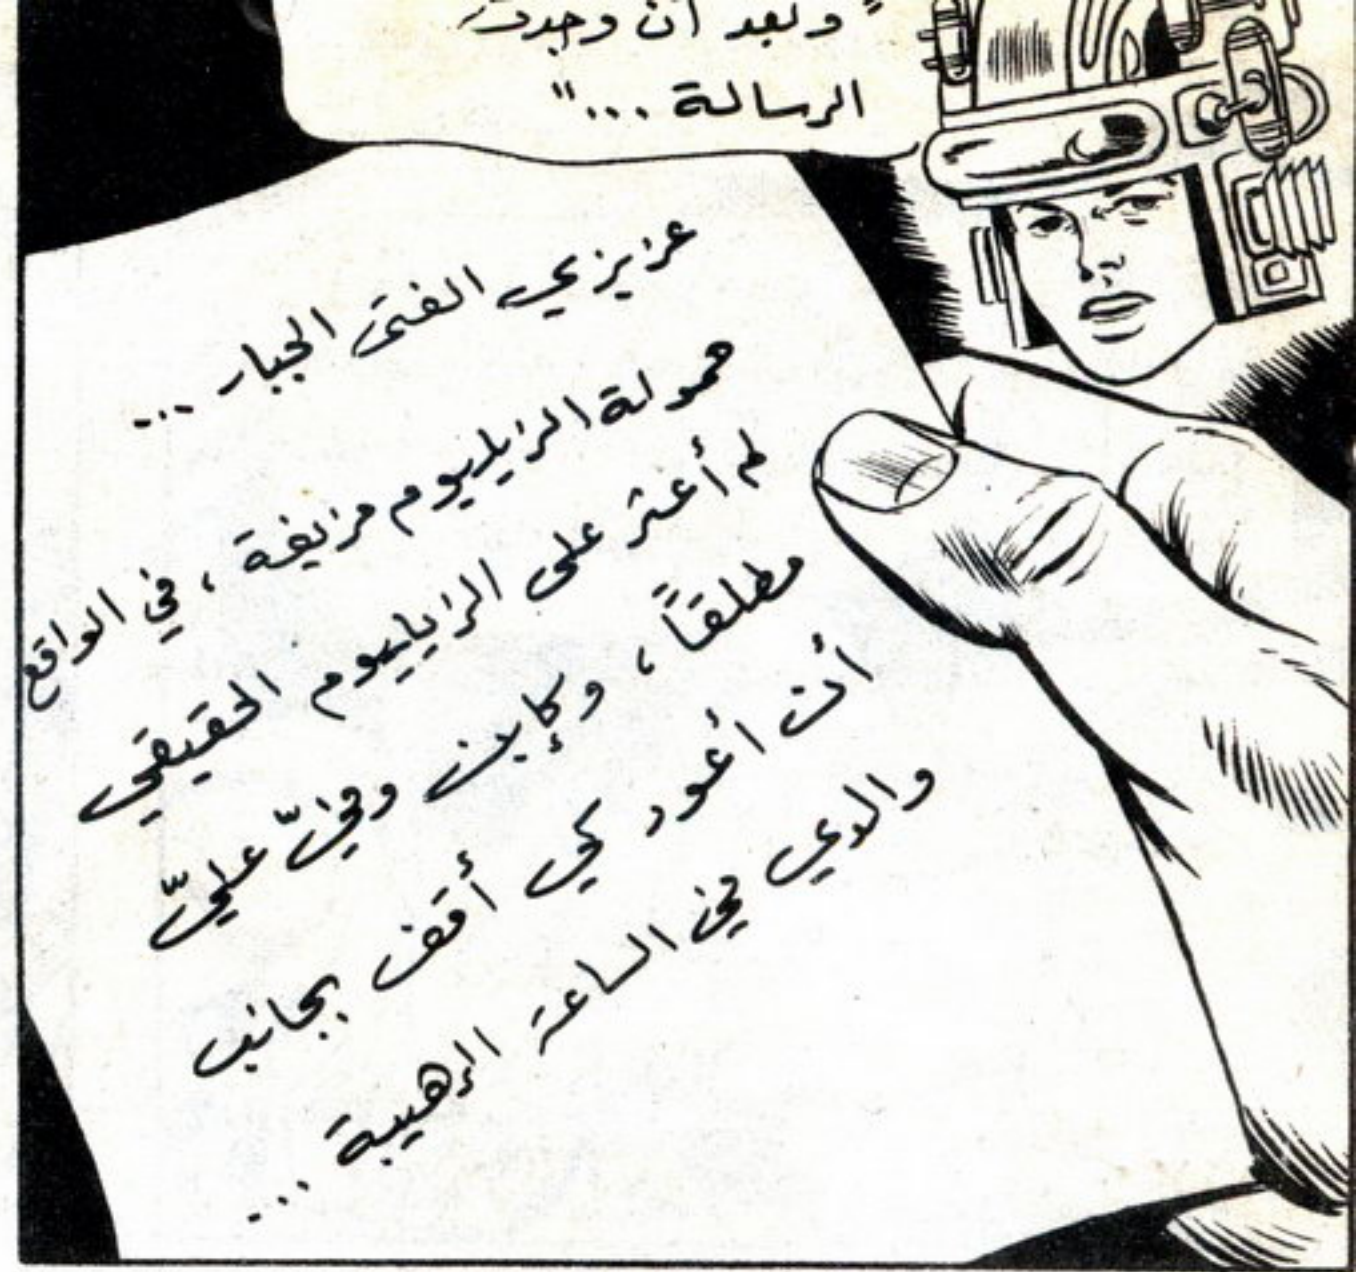 "وبعد أن وجدت
الرسالة ..."
عزيزي الفتى الجبار ...
حمولة الزيليوم مزيفة ، في الواقع
لم أعثر على الزيليوم الحقيقي
مطلقاً ، وكإبن وفيّ عليّ
أن أعود كي أقف بجانب
والدي في الساعة الرهيبة ...